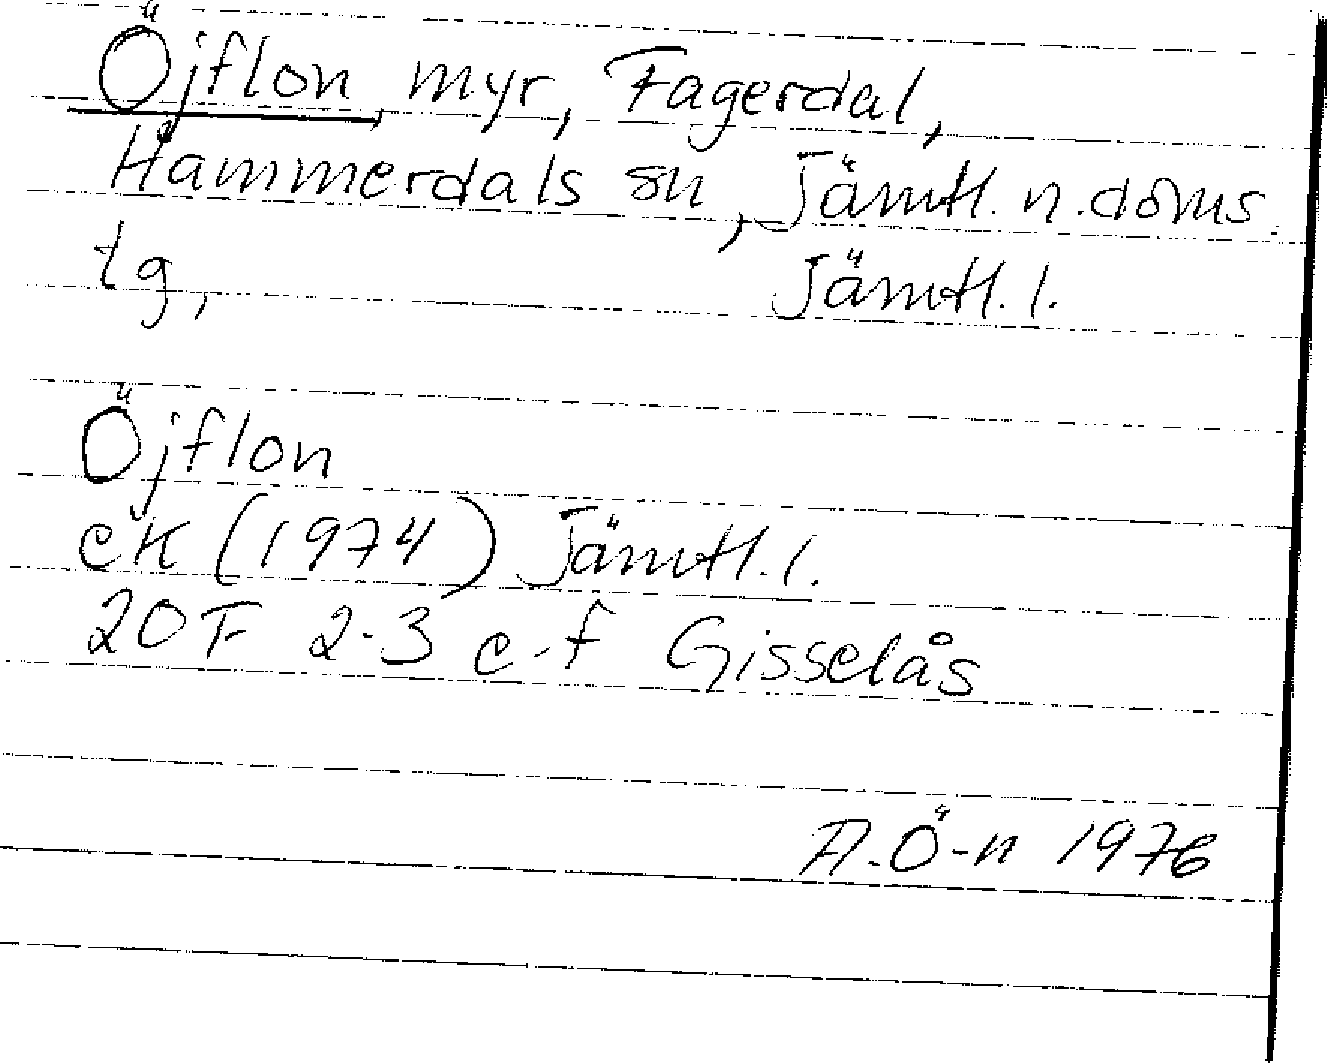 Öjflon, myr, Fagerdal,
Hammerdals sn, Jämtl. n. doms.
tg, Jämtl. l.
Öjflon
ek (1974) Jämtl. l.
20F 2-3 e-f Gisselås
A. Ö-n 1976